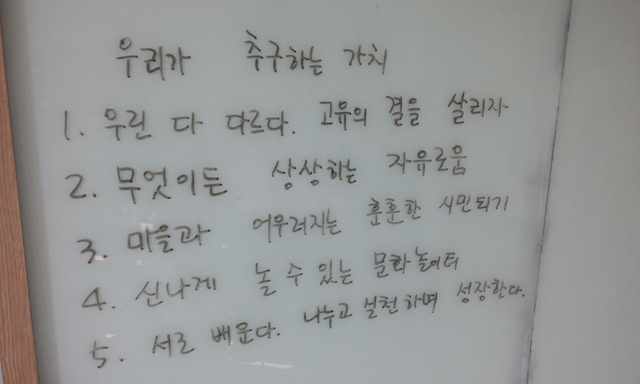 우리가 추구하는 가치
1. 우린 다 다르다. 고유의 결을 살리자
2. 무엇이든 상상하는 자유로움
3. 마을과 어우러지는 훈훈한 시민되기
4. 신나게 놀 수 있는 문화놀이터
5. 서로 배운다. 나누고 실천하며 성장한다.